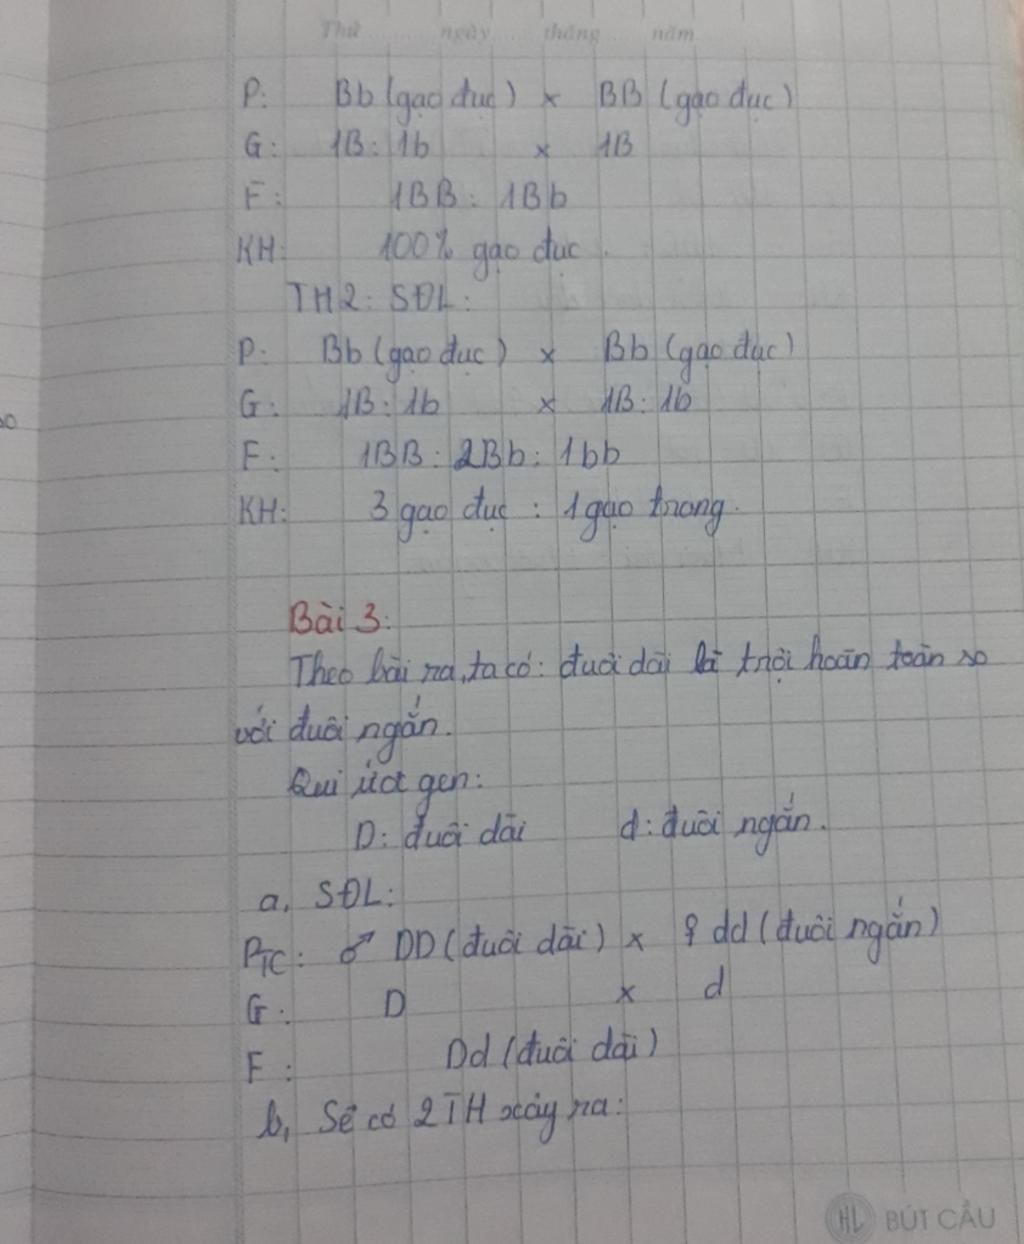 Thứ ngày tháng năm
P: Bb (gạo đục) x BB (gạo đục)
G: 1B : 1b x 1B
F: 1BB : 1Bb
KH: 100% gạo đục.
TH2: SĐL:
P: Bb (gạo đục) x Bb (gạo đục)
G: 1B : 1b x 1B : 1b
F: 1BB : 2Bb : 1bb
KH: 3 gạo đục : 1 gạo trong.
Bài 3:
Theo bài ra, ta có: đuôi dài là trội hoàn toàn so
với đuôi ngắn.
Qui ước gen:
D: đuôi dài d: đuôi ngắn.
a, SĐL:
PTC: ♂ DD (đuôi dài) x ♀ dd (đuôi ngắn)
G: D x d
F: Dd (đuôi dài)
b, Sẽ có 2TH xảy ra:
HL BÚT CẦU